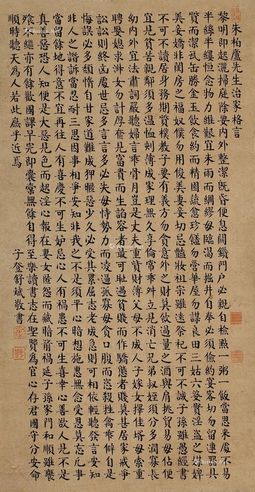 朱柏廬先生治家格言
黎明即起灑掃庭除要內外整潔既昏便息關鎖門戶必親自檢點一粥一飯當思來處不易
半絲半縷恒念物力維艱宜未雨而綢繆毋臨渴而掘井自奉必須儉約宴客切勿留連器具
質而潔瓦缶勝金玉飲食約而精園蔬愈珍饈勿營華屋勿謀良田三姑六婆實淫盜之媒婢
美妾嬌非閨房之福奴僕勿用俊美妻妾切忌艷妝祖宗雖遠祭祀不可不誠子孫雖愚經書不
可不讀居身務期質樸教子要有義方勿貪意外之財莫飲過量之酒與肩挑貿易毋佔便
宜見貧苦親鄰須多溫恤刻薄成家理無久享倫常乖舛立見消亡兄弟叔姪須分多潤寡長幼內外
宜法肅辭嚴聽婦言乖骨肉豈是丈夫重貲財薄父母不成人子嫁女擇佳壻毋索重
聘娶媳求淑女勿計厚奩見富貴而生諂容者最可恥遇貧窮而作驕態者賤莫甚居家戒爭
訟訟則終凶處世戒多言言多必失毋恃勢力而凌逼孤寡毋貪口腹而恣殺牲禽乖僻自是
悔誤必多頹惰自甘家道難成狎暱惡少久必受其累屈志老成急則可相依輕聽發言安知
非人之譖訴當忍耐三思因事相爭安知非我之不是須平心暗想施惠無念受恩莫忘凡事
當留餘地得意不宜再往人有喜慶不可生妒忌心人有禍患不可生喜幸心善欲人見不是
真善惡恐人知便是大惡見色而起淫心報在妻女匿怨而用暗箭禍延子孫家門和順雖饔
飧不繼亦有餘歡國課早完即囊橐無餘自得至樂讀書志在聖賢為官心存君國守分安命
順時聽天為人若此庶乎近焉
子奎舒斌敬書